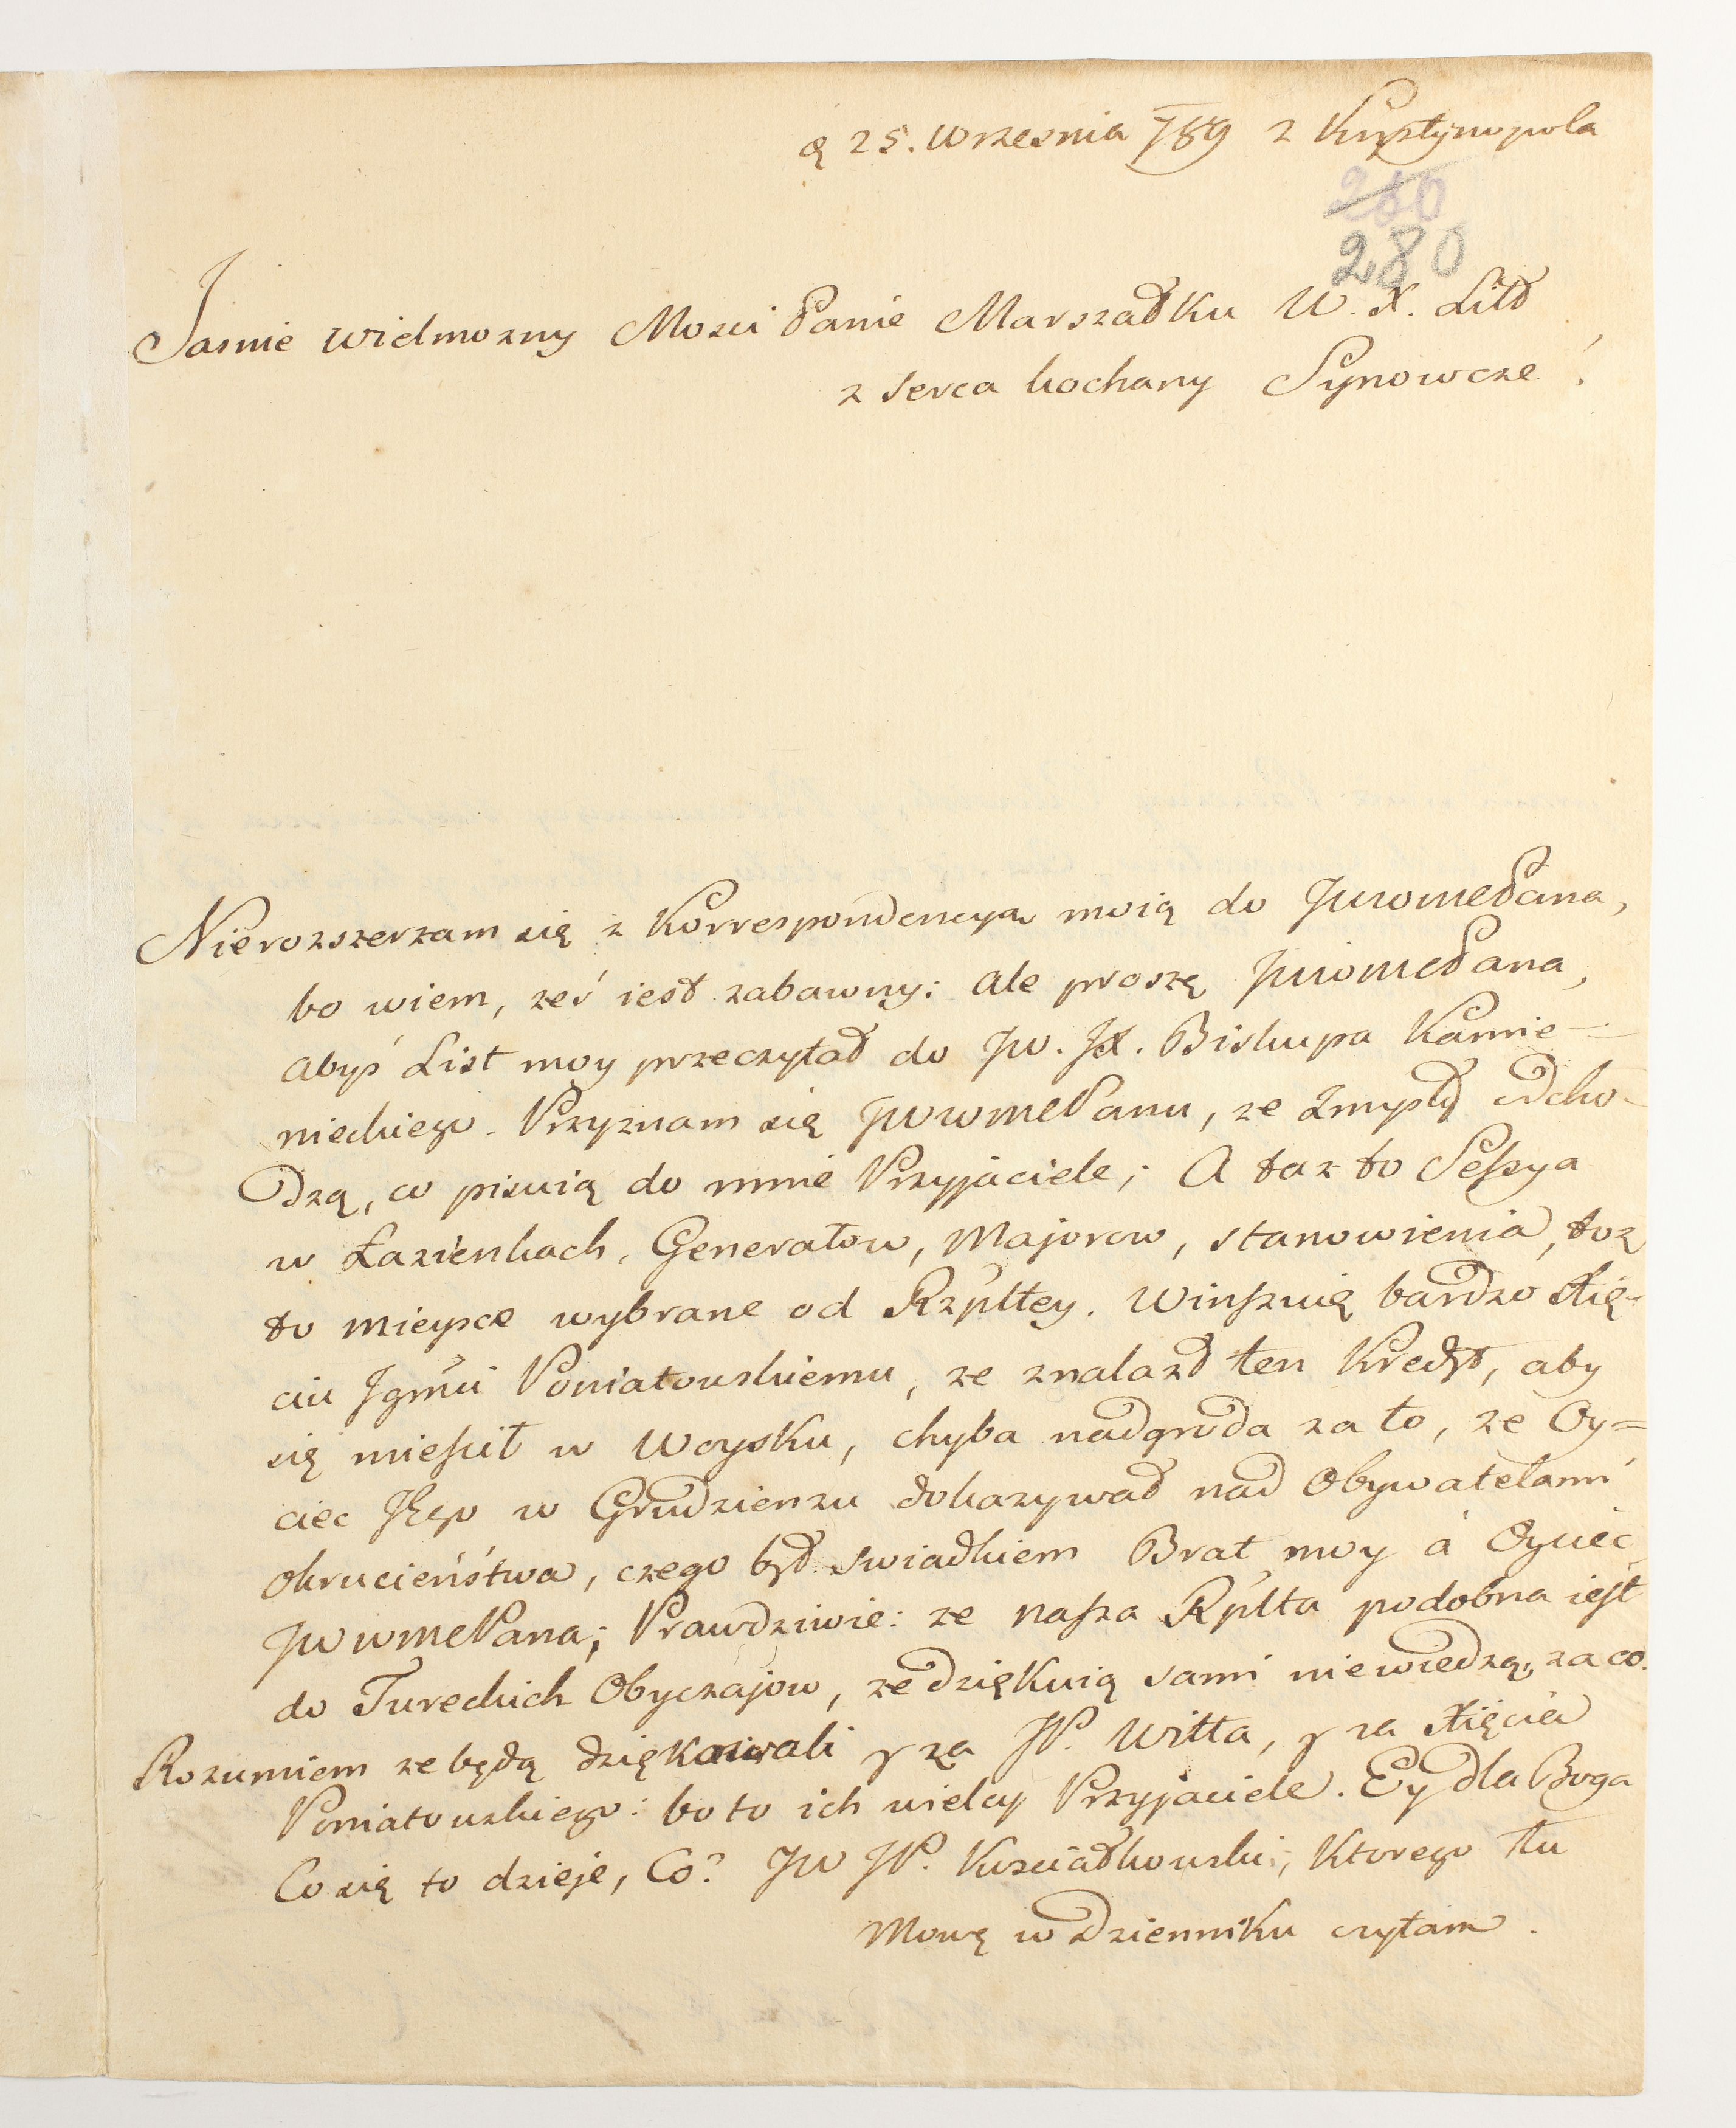 d 25. Wrzesnia 789 z Krystynopola
280
280
Jasnie wielmozny Mosci Panie Marszałku W. X. Litt
z serca kochany Synowcze!
Nierozszerzam się z Korrespondencyą moią do JwwmcPana,
bo wiem, żeś iest zabawny: ale proszę JwwmcPana,
abyś List moy przeczytał do Jw. JX. Biskupa Kamie-
nieckiego. Przyznam się JwwmcPanu, ze Zmysły odcho-
dzą, co pisuią do mnie Przyjaciele; A taz to Sessya
w Łazienkach, Generałow, Majorow, stanowienia, toz
to mieysce wybrane od Rzpltey. Winszuię bardzo Xię-
ciu Jgmci Poniatowskiemu, ze znalazł ten Kredyt, aby
się mieścił w Woysku, chyba nadgroda za to, ze Oy=
ciec Jego w Grudzienzu dokazywał nad Obywatelami
okrucieństwa, czego był swiadkiem Brat moy á Oyciec
JwwmcPana; Prawdziwie: ze nasza Rplta podobna iest
do Tureckich Obyczajow, ze dziękuią sami niewiedzą, za co.
Rozumiem ze będą dziękowali y za JP. Witta, y za Xięcia
Poniatowskiego: bo to ich wielcy Przyjaciele. Ey dla Boga
Co się to dzieje, Co? JW JP. Kosciałkowski, Ktorego tu
Mowę w Dzienniku czytam.